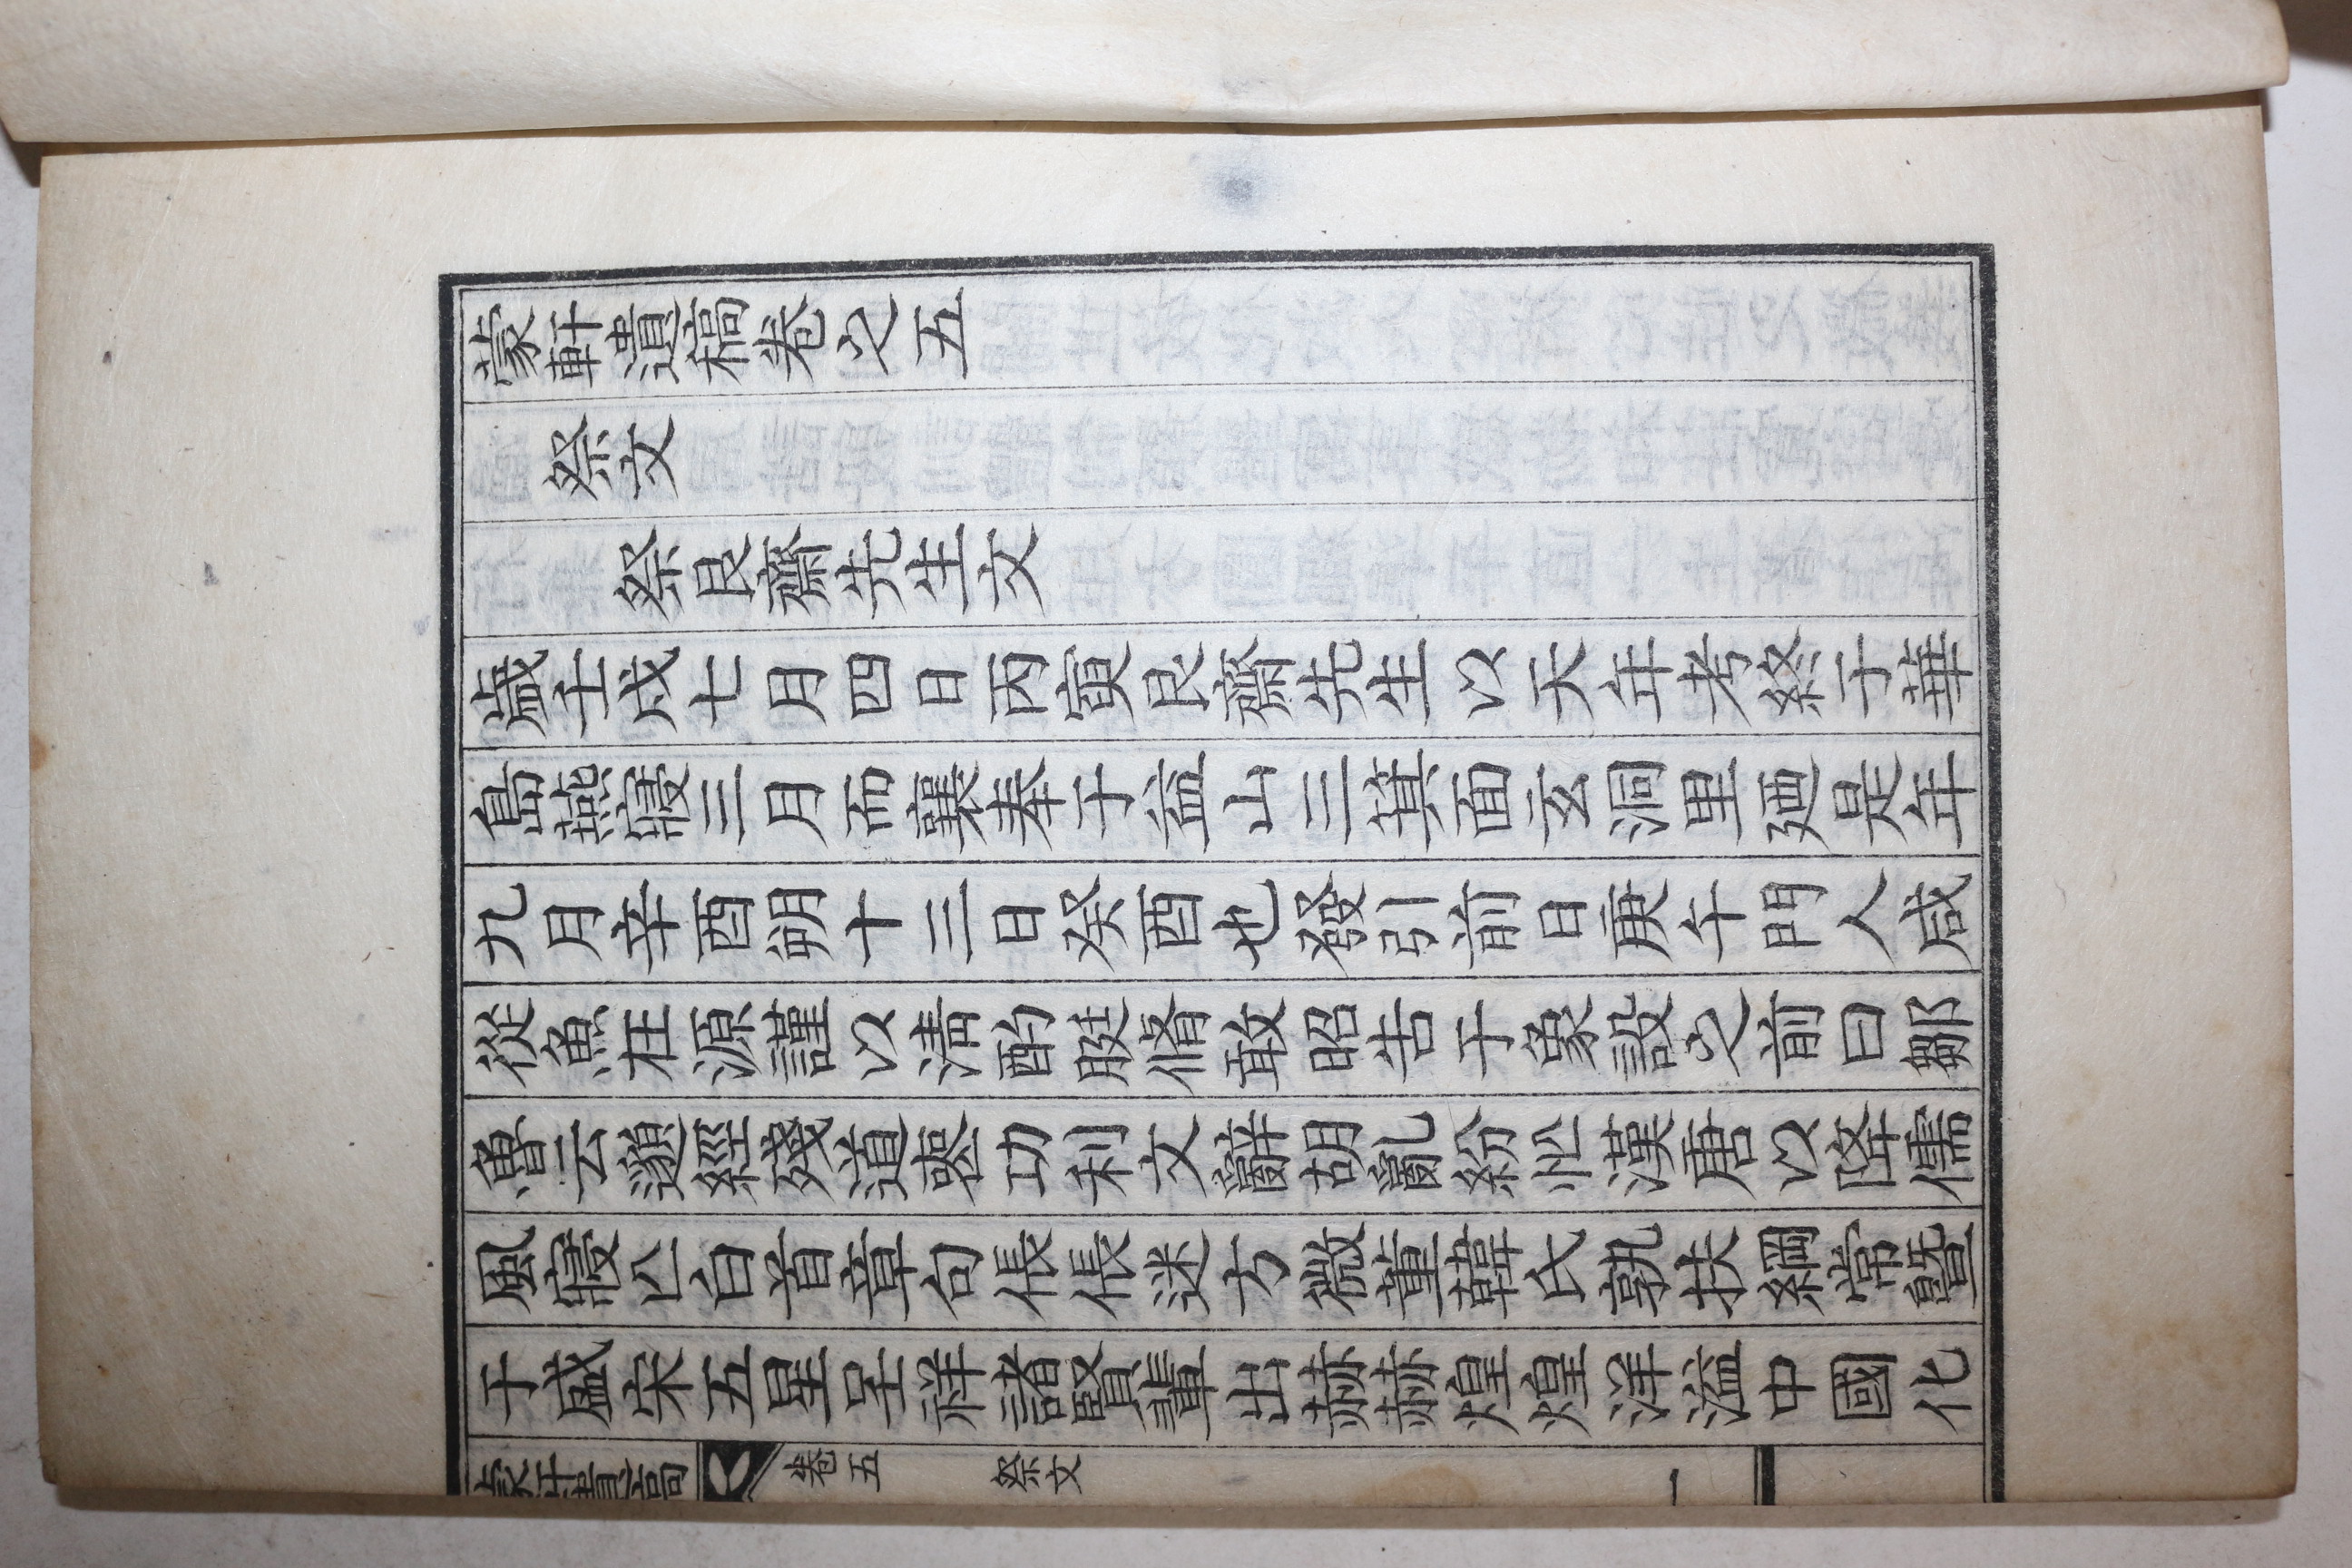 蒙軒遺稿卷之五
祭文
祭艮齋先生文
歲壬戌七月四日丙寅艮齋先生以天年考終于華
島燕寢三月而襄奉于益山三箕面玄洞里廼是年
九月辛酉朔十三日癸酉也發引前日庚午門人咸
從魚在源謹以淸酌脡脩敢昭告于象設之前曰鄒
魯云邈經殘道喪功利文辭胡亂紛忙漢唐以降儒
風寢亡白首章句倀倀迷方微董韓氏孰扶綱常曁
于盛宋五星呈祥諸賢輩出赫赫煌煌洋溢中國化
蒙軒遺稿 卷五 祭文 一